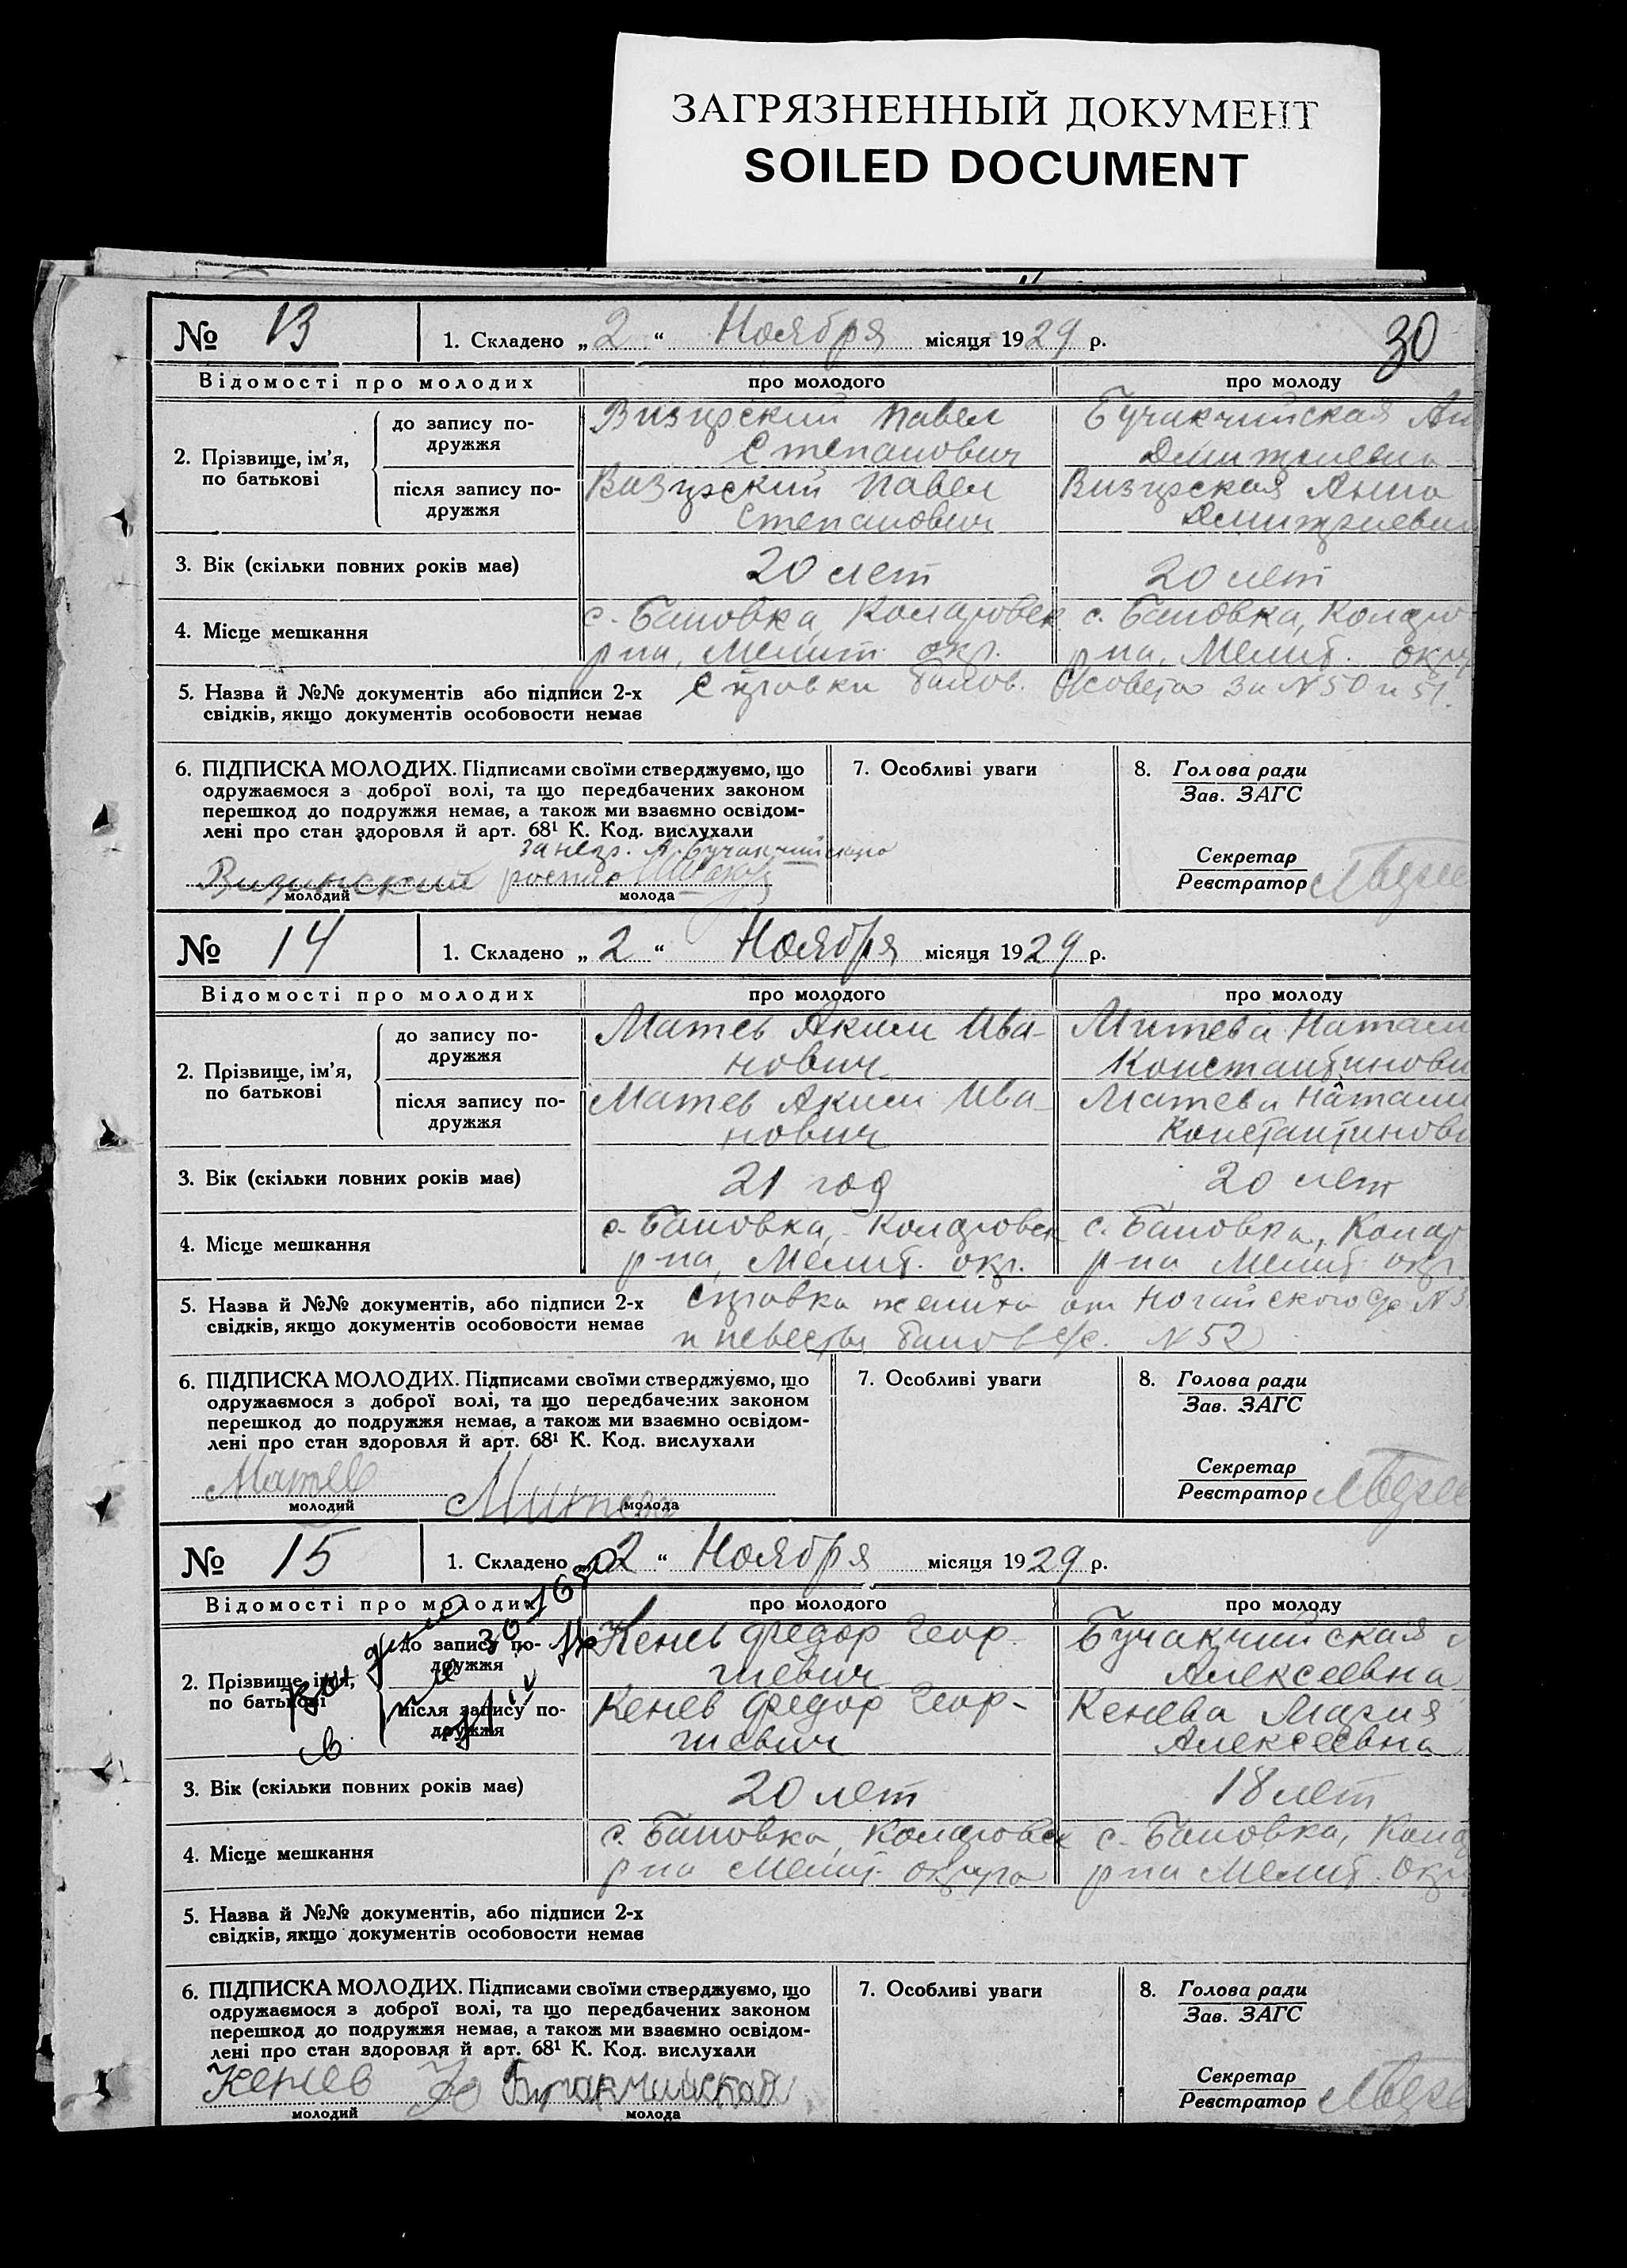 ЗАГРЯЗНЕННЫЙ ДОКУМЕНТ
SOILED DOCUMENT
30
№ 13 1. Складено „2“ Ноября місяця 1929 р.
Відомості про молодих про молодого про молоду
2. Прізвище, ім’я, по батькові
до запису подружжя
Визирский Павел Бучакчийская Ан
Степанович Дмитриевна
після запису подружжя
Визирский Павел Визирская Анна
Степанович Дмитриевн
3. Вік (скільки повних років має) 20 лет 20 лет
4. Місце мешкання
с. Бановка, Коларовск с. Бановка, Коларо
р-на, Мелит. окр. р-на, Мелит. окру
5. Назва й №№ документів або підписи 2-х Справки Банов. с/совета за N 50 и 51.
свідків, якщо документів особовости немає
6. ПІДПИСКА МОЛОДИХ. Підписами своїми стверджуємо, що 7. Особливі уваги 8. Голова ради
одружаємося з доброї волі, та що передбачених законом Зав. ЗАГС
перешкод до подружжя немає, а також ми взаємно освідом-
лені про стан здоровля й арт. 68¹ К. Код. вислухали
за негр. А. Бучакчийскую Секретар
Визирский роспис Реєстратор
молодий молода
№ 14 1. Складено „2“ Ноября місяця 1929 р.
Відомості про молодих про молодого про молоду
2. Прізвище, ім’я, по батькові
до запису подружжя
Матев Аким Ива- Митева Натали
нович Константинови
після запису подружжя
Матев Аким Ива- Матева Натали
нович Константинов
3. Вік (скільки повних років має) 21 год 20 лет
4. Місце мешкання
с. Бановка, Коларовск с. Бановка, Колар
р-на, Мелит. окр. р-на Мелит. окр.
5. Назва й №№ документів, або підписи 2-х Справка жениха от Ногайского с/с N 3
свідків, якщо документів особовости немає и невесты Банов с/с. N 52
6. ПІДПИСКА МОЛОДИХ. Підписами своїми стверджуємо, що 7. Особливі уваги 8. Голова ради
одружаємося з доброї волі, та що передбачених законом Зав. ЗАГС
перешкод до подружжя немає, а також ми взаємно освідом-
лені про стан здоровля й арт. 68¹ К. Код. вислухали
Секретар
Матев Митева Реєстратор
молодий молода
№ 15 1. Складено „2“ Ноября місяця 1929 р.
Відомості про молодих про молодого про молоду
2. Прізвище, ім’я, по батькові
до запису подружжя
Кенев Федор Геор- Бучакчийская
гиевич Алексеевна
після запису подружжя
Кенев Федор Геор- Кенева Мария
гиевич Алексеевна
3. Вік (скільки повних років має) 20 лет 18 лет
4. Місце мешкання
с. Бановка, Коларовск с. Бановка, Кола
р-на Мелит. округа р-на Мелит. окр
5. Назва й №№ документів, або підписи 2-х
свідків, якщо документів особовости немає
6. ПІДПИСКА МОЛОДИХ. Підписами своїми стверджуємо, що 7. Особливі уваги 8. Голова ради
одружаємося з доброї волі, та що передбачених законом Зав. ЗАГС
перешкод до подружжя немає, а також ми взаємно освідом-
лені про стан здоровля й арт. 68¹ К. Код. вислухали
Секретар
Кенев Бучакчийская Реєстратор
молодий молода